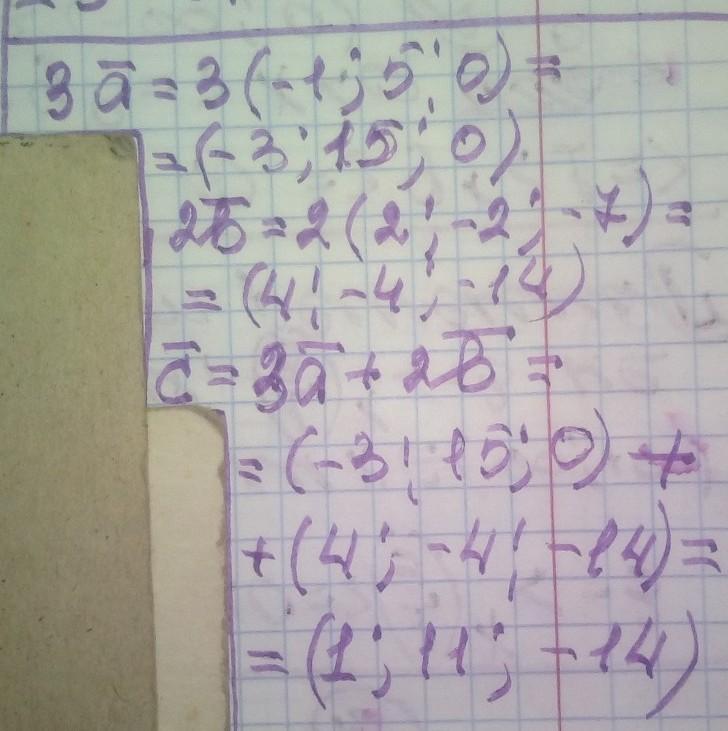 3a̅ = 3(-1; 5; 0) =
= (-3; 15; 0)
2b̅ = 2(2; -2; -7) =
= (4; -4; -14)
c̅ = 3a̅ + 2b̅ =
= (-3; 15; 0) +
+ (4; -4; -14) =
= (1; 11; -14)